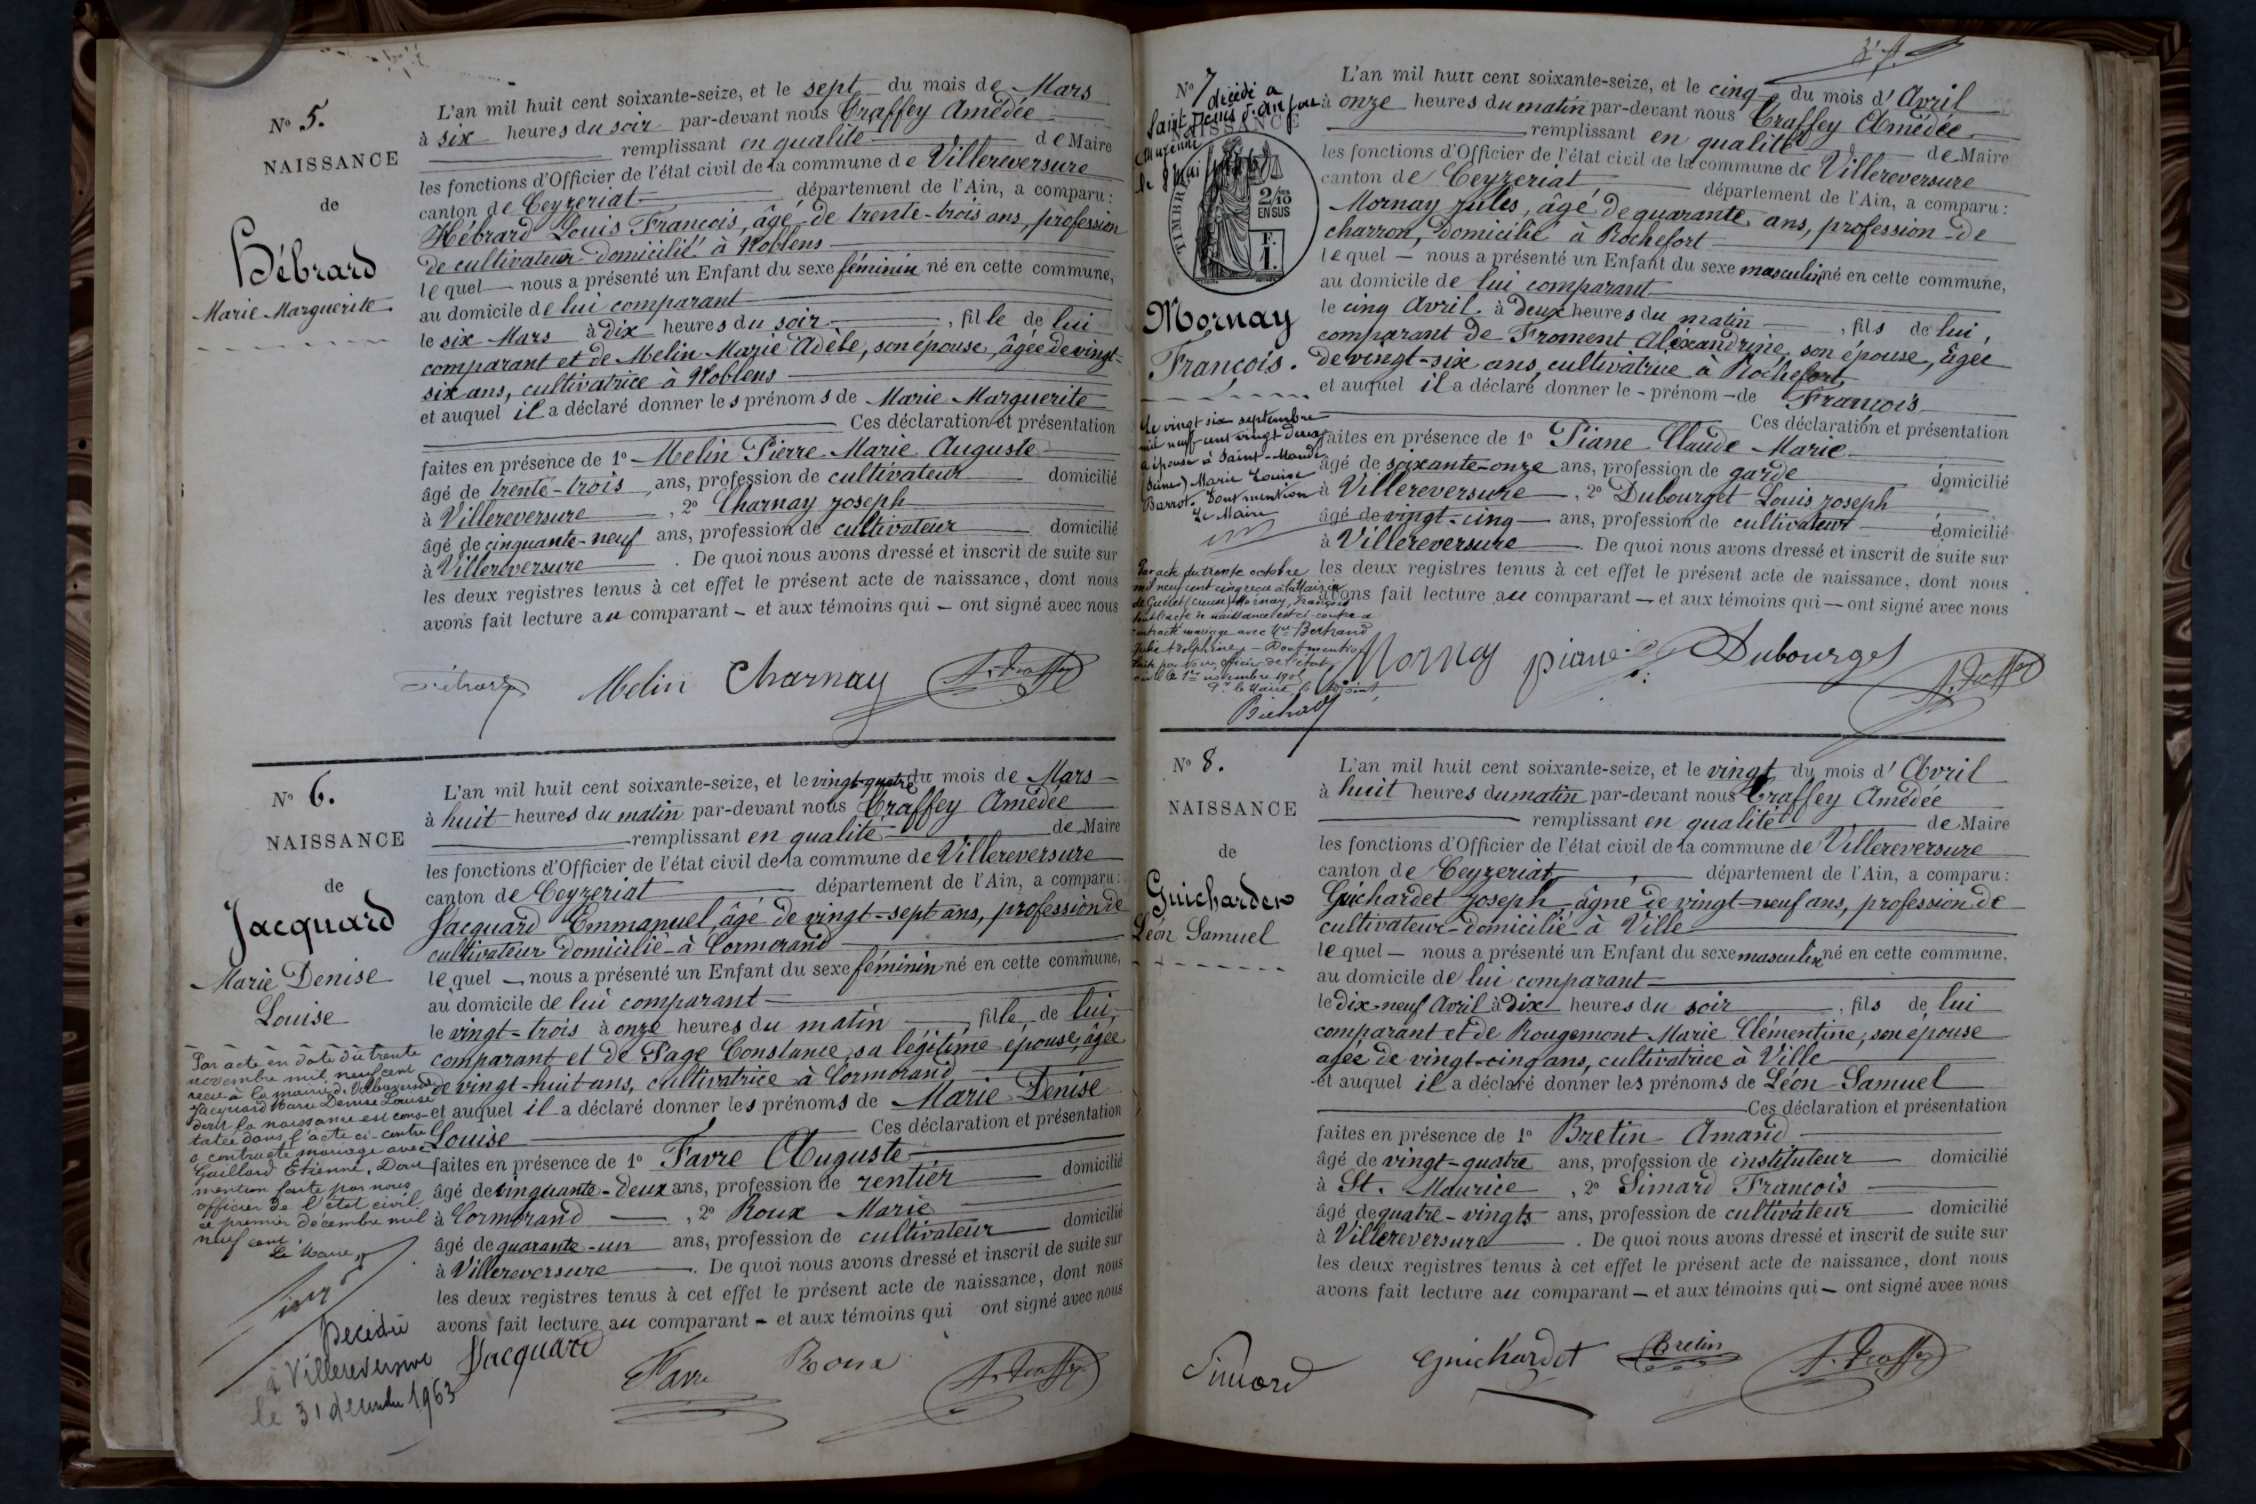 Nº 5.
NAISSANCE
de
Hébrard
Marie Marguerite
L'an mil huit cent soixante-seize, et le sept du mois de Mars
à six heures du soir par-devant nous Craffey Amédée
remplissant en qualité de Maire
les fonctions d'Officier de l'état civil de la commune de Villereversure
canton de Ceyzeriat département de l'Ain, a comparu:
Hébrard Louis François, âgé de trente-trois ans, profession
de cultivateur domicilié à Noblens
lequel nous a présenté un Enfant du sexe féminin né en cette commune,
au domicile de lui comparant
le six Mars à dix heures du soir, fille de lui
comparant et de Melin Marie Adèle, son épouse, âgée de vingt-
six ans, cultivatrice à Noblens
et auquel il a déclaré donner les prénoms de Marie Marguerite
Ces déclaration et présentation
faites en présence de 1º Melin Pierre Marie Auguste
âgé de trente-trois ans, profession de cultivateur domicilié
à Villereversure, 2º Charnay Joseph
âgé de cinquante-neuf ans, profession de cultivateur domicilié
à Villereversure. De quoi nous avons dressé et inscrit de suite sur
les deux registres tenus à cet effet le présent acte de naissance, dont nous
avons fait lecture au comparant - et aux témoins qui - ont signé avec nous
Melin Charnay
Nº 6.
NAISSANCE
de
Jacquard
Marie Denise
Louise
Par acte en date du trente
novembre mil neuf cent
reçu à la mairie de Villereversure
Jacquard Marie Denise Louise
dont la naissance est cons-
tatée dans l'acte ci-contre
a contracté mariage avec
Gaillard Etienne, Dont
mention faite par nous
officier de l'état civil
ce premier décembre mil
neuf cent
Le Maire,
Décédée
à Villereversure
le 31 décembre 1963
L'an mil huit cent soixante-seize, et le vingt-quatre du mois de Mars
à huit heures du matin par-devant nous Craffey Amédée
remplissant en qualité de Maire
les fonctions d'Officier de l'état civil de la commune de Villereversure
canton de Ceyzeriat département de l'Ain, a comparu:
Jacquard Emmanuel, âgé de vingt-sept ans, profession de
cultivateur domicilié à Cormorand
lequel - nous a présenté un Enfant du sexe féminin né en cette commune,
au domicile de lui comparant
le vingt-trois à onze heures du matin, fille de lui,
comparant et de Page Constance, sa légitime épouse, âgée
de vingt-huit ans, cultivatrice à Cormorand
et auquel il a déclaré donner les prénoms de Marie Denise
Louise Ces déclaration et présentation
faites en présence de 1º Favre Auguste
âgé de cinquante-deux ans, profession de rentier domicilié
à Cormorand, 2º Roux Marie
âgé de quarante-un ans, profession de cultivateur domicilié
à Villereversure. De quoi nous avons dressé et inscrit de suite sur
les deux registres tenus à cet effet le présent acte de naissance, dont nous
avons fait lecture au comparant - et aux témoins qui ont signé avec nous
Jacquard Favre Roux
Nº 7
NAISSANCE
décédé à
Saint Denis
le 8 mai
TIMBRE
2/10
EN SUS
F.
1.
Mornay
François.
Le vingt six septembre
mil neuf cent vingt deux
a épousé à Saint-Mandé
(Seine) Marie Louise
Barrot. Dont mention
Le Maire
Par acte du trente octobre
mil neuf cent cinq reçu à la Mairie
de Guéret (Creuse) Mornay François
dont l'acte de naissance est ci-contre a
contracté mariage avec Bertrand
Dont mention
faite par nous officier de l'état
civil le 1er novembre 1905
Pr le Maire, l'Adjoint,
L'an mil huit cent soixante-seize, et le cinq du mois d'Avril
à onze heures du matin par-devant nous Craffey Amédée
remplissant en qualité de Maire
les fonctions d'Officier de l'état civil de la commune de Villereversure
canton de Ceyzeriat département de l'Ain, a comparu:
Mornay Jules, âgé de quarante ans, profession de
charron, domicilié à Rochefort
lequel - nous a présenté un Enfant du sexe masculin né en cette commune,
au domicile de lui comparant
le cinq Avril à deux heures du matin, fils de lui,
comparant de Froment Aléxandrine, son épouse, âgée
de vingt-six ans, cultivatrice à Rochefort
et auquel il a déclaré donner le - prénom - de François
Ces déclaration et présentation
faites en présence de 1º Piane Claude Marie
âgé de soixante-onze ans, profession de garde domicilié
à Villereversure, 2º Dubourget Louis Joseph
âgé de vingt-cinq ans, profession de cultivateur domicilié
à Villereversure. De quoi nous avons dressé et inscrit de suite sur
les deux registres tenus à cet effet le présent acte de naissance, dont nous
avons fait lecture au comparant - et aux témoins qui - ont signé avec nous
Mornay piane Dubourget
Nº 8.
NAISSANCE
de
Guichardet
Léon Samuel
L'an mil huit cent soixante-seize, et le vingt du mois d'Avril
à huit heures du matin par-devant nous Craffey Amédée
remplissant en qualité de Maire
les fonctions d'Officier de l'état civil de la commune de Villereversure
canton de Ceyzeriat, département de l'Ain, a comparu:
Guichardet Joseph âgné de vingt-neuf ans, profession de
cultivateur domicilié à Ville
lequel - nous a présenté un Enfant du sexe masculin né en cette commune,
au domicile de lui comparant
le dix-neuf Avril à dix heures du soir, fils de lui
comparant et de Rougemont Marie Clémentine, son épouse
agée de vingt-cinq ans, cultivatrice à Ville
et auquel il a déclaré donner les prénoms de Léon Samuel
Ces déclaration et présentation
faites en présence de 1º Bretin Amand
âgé de vingt-quatre ans, profession de instituteur domicilié
à St. Maurice, 2º Simard François
âgé de quatre-vingts ans, profession de cultivateur domicilié
à Villereversure. De quoi nous avons dressé et inscrit de suite sur
les deux registres tenus à cet effet le présent acte de naissance, dont nous
avons fait lecture au comparant - et aux témoins qui - ont signé avec nous
Simard Guichardet Bretin